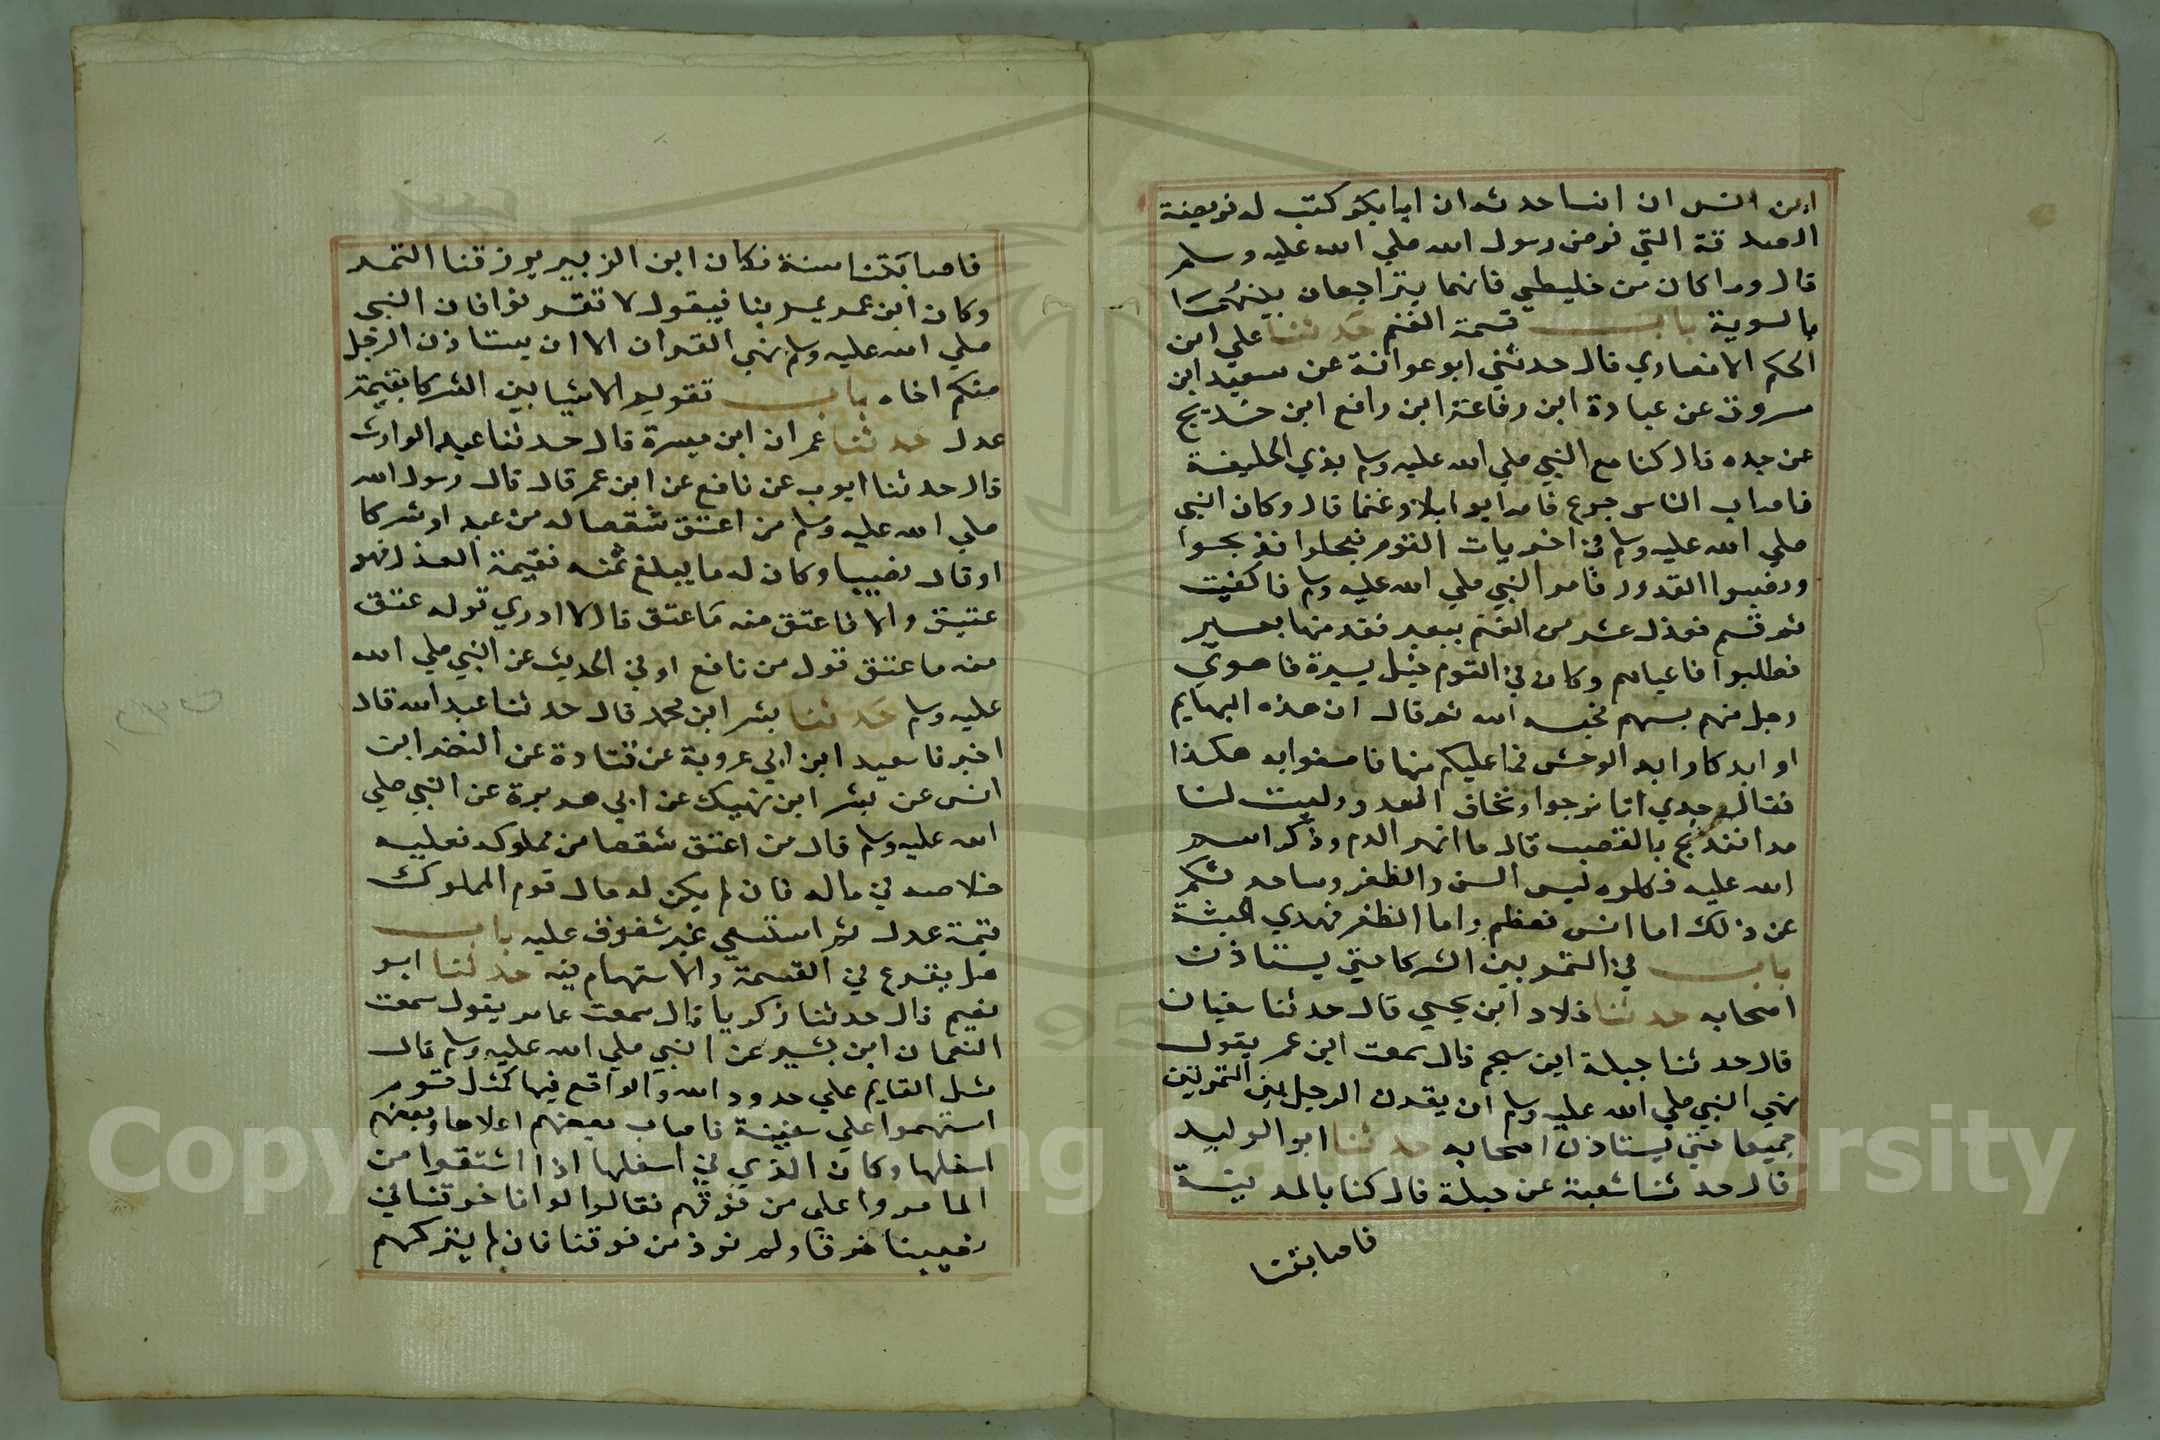 ابن انس ان انسا حدثه ان ابا بكر كتب له فريضة
الصدقة التي فرض رسول الله صلي الله عليه وسلم
قال وما كان من خليطي فانهما يتراجعان بينهما
بالسوية باب قسمة الغنم حدثنا علي ابن
الحكم الانصاري قال حدثني ابو عوانة عن سعيد ابن
مسروق عن عباوة ابن رفاعة ابن رافع ابن خديج
عن جده قال كنا مع النبي صلي الله عليه وسلم بذي الحليفة
فاصاب الناس جوع فاصابوا ابلا وغنما قال وكان النبي
صلي الله عليه وسلم في اخريات القوم فعجلوا فذبحوا
ونصبوا القدور فامر النبي صلي الله عليه وسلم فاكفيت
ثم قسم فعدل عشر من الغنم ببعير فند منها بعير
فطلبوا فاعياهم وكان في القوم خيل يسيرة فاهوي
رجل منهم بسهم فحبسه الله ثم قال ان هذه البهايم
اوابد كاوابد الوحش فما عليكم منها فاصنعوا به هكذا
فقال جدي انا نرجوا ونخاف العدو وليت لنا
مدا افنذبح بالقصب قال ما انهر الدم وذكر اسم
الله عليه فكلوه ليس السن والظفر وساحدثكم
عن ذلك اما السن فعظم واما الظفر فمدي الحبشة
باب في التمر بين الشركا حتي يستاذن
اصحابه حدثنا خلاد ابن يحيي قال حدثنا سفيان
قال حدثنا جبلة ابن سحيم قال سمعت ابن عمر يقول
نهي النبي صلي الله عليه وسلم ان يقرن الرجل بين التمرتين
جميعا حتي يستاذن اصحابه حدثنا ابو الوليد
قال حدثنا شعبة عن جبلة قال كنا بالمدينة
فاصابتنا
فاصابتنا سنة فكان ابن الزبير يرزقنا التمر
وكان ابن عمر يمر بنا فيقول لا تقرنوا فان النبي
صلي الله عليه وسلم نهي القران الا ان يستاذن الرجل
منكم اخاه باب تقويم الاشيا بين الشركا بقيمة
عدل حدثنا عمران ابن ميسرة قال حدثنا عبد الوارث
قال حدثنا ايوب عن نافع عن ابن عمر قال قال رسول الله
صلي الله عليه وسلم من اعتق شقصا له من عبد او شركا
او قال نصيبا وكان له ما يبلغ ثمنه بقيمة العدل فهو
عتيق والا فاعتق منه ما عتق قال لا ادري قوله عتق
منه ما عتق قول من نافع او في الحديث عن النبي صلي الله
عليه وسلم حدثنا بشر ابن محمد قال حدثنا عبد الله قال
اخبرنا سعيد ابن ابي عروبة عن قتادة عن النضر ابن
انس عن بشر ابن نهيك عن ابي هريرة عن النبي صلي
الله عليه وسلم قال من اعتق شقصا من مملوكه فعليه
خلاصه في ماله فان لم يكن له مال قوم المملوك
قيمة عدل ثم استسعي غير شقوق عليه باب
هل يقرع في القسمة والاستهام فيه حدثنا ابو
نعيم قال حدثنا زكريا قال سمعت عامر يقول سمعت
النعمان ابن بشير عن النبي صلي الله عليه وسلم قال
مثل القايم علي حدود الله والواقع فيها كمثل قوم
استهموا علي سفينة فاصاب بعضهم اعلاها وبعضهم
اسفلها وكان الذي في اسفلها اذا استقوا من
الما مروا علي من فوقهم فقالوا لو انا خرقنا في
نصيبنا خرقا ولم نوذ من فوقنا فان لم يتركهم
Copyright © King Saud University